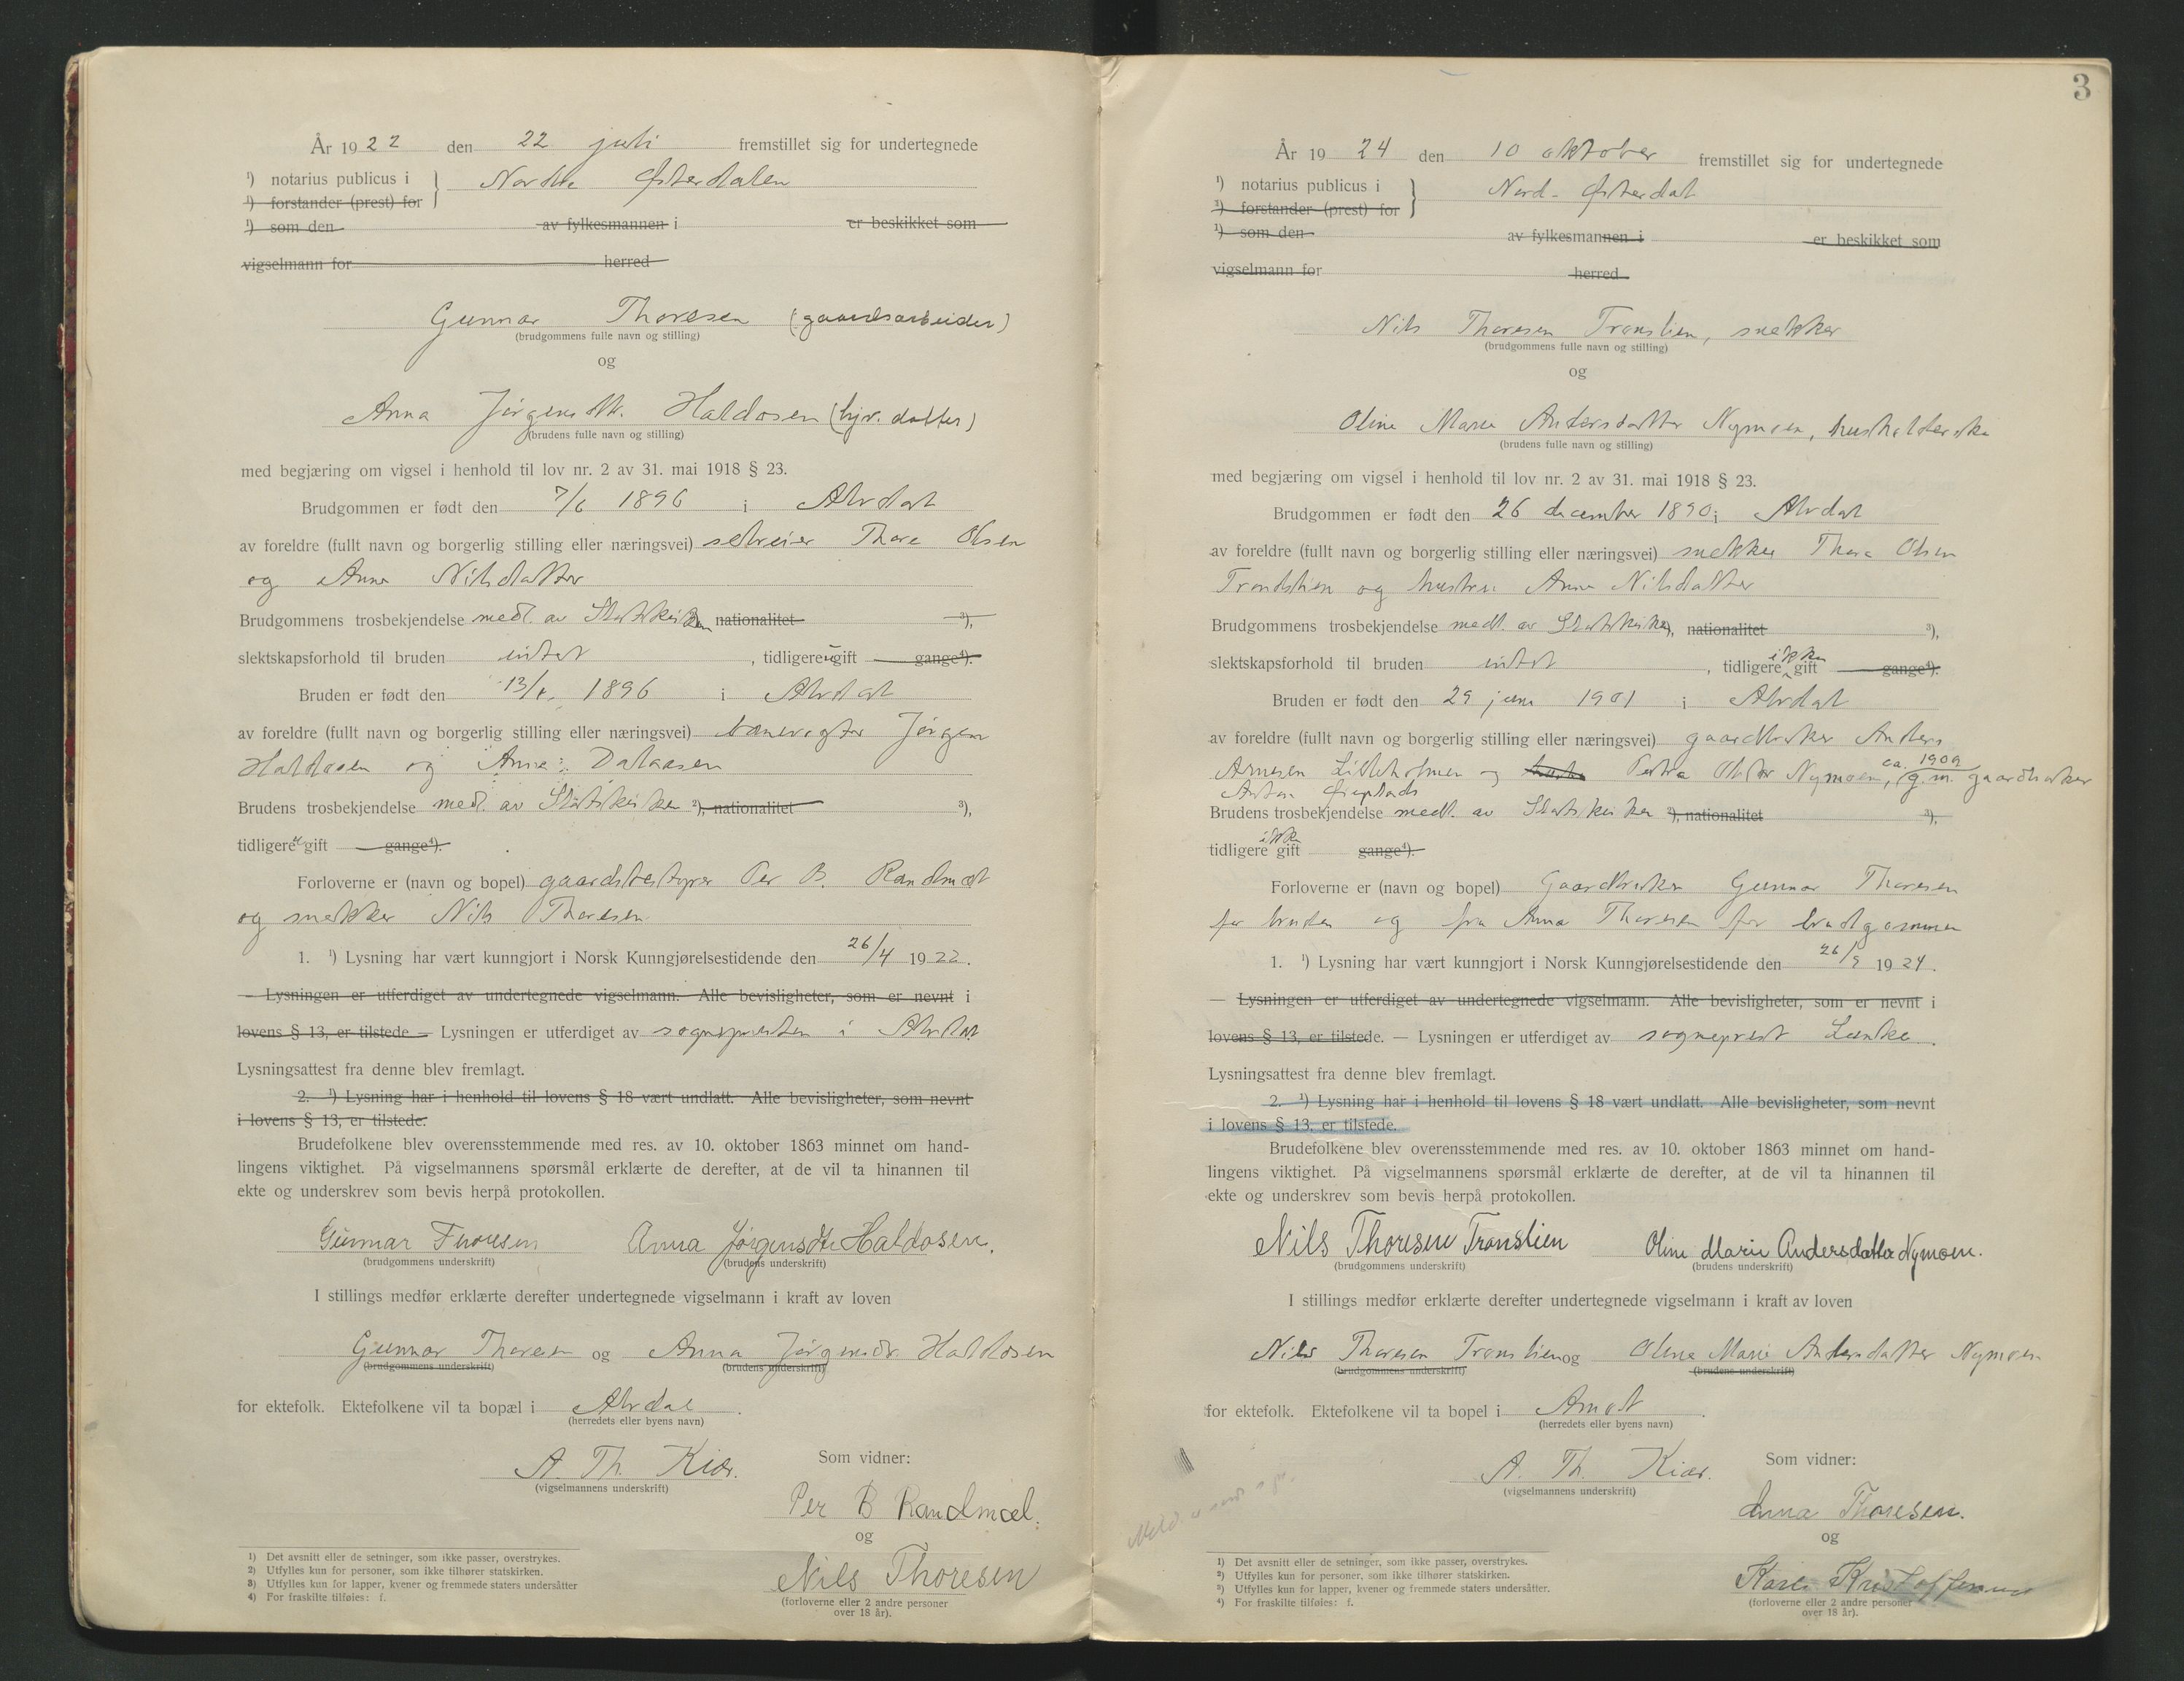 År 1922 den 22 juli fremstillet sig for undertegnede
¹) notarius publicus i } Nordre Østerdalen
¹) forstander (prest) for
¹) som den av fylkesmannen i er beskikket som
vigselmann for herred
Gunnar Thoresen (gaardsarbeider)
(brudgommens fulle navn og stilling)
og
Anna Jørgensdtr. Haldosen (hjv. datter)
(brudens fulle navn og stilling)
med begjæring om vigsel i henhold til lov nr. 2 av 31. mai 1918 § 23.
Brudgommen er født den 7/6 1896 i Alvdal
av foreldre (fullt navn og borgerlig stilling eller næringsvei) selveier Thore Olsen
og Anne Nilsdatter
Brudgommens trosbekjendelse medl. av Statskirken nationalitet ³),
slektskapsforhold til bruden intet , tidligere u gift gange⁴).
Bruden er født den 13/ 1896 i Alvdal
av foreldre (fullt navn og borgerlig stilling eller næringsvei) banevogter Jørgen
Haldosen og Anne Dalaasen
Brudens trosbekjendelse medl. av Statskirken ²), nationalitet ³),
tidligere u gift gange⁴).
Forloverne er (navn og bopel) gaardsbestyrer Per B. Randmæl
og snekker Nils Thoresen
1. ¹) Lysning har vært kunngjort i Norsk Kunngjørelsestidende den 26/4 1922.
— Lysningen er utferdiget av undertegnede vigselmann. Alle bevisligheter, som er nevnt i
lovens § 13, er tilstede — Lysningen er utferdiget av sognepresten i Alvdal
Lysningsattest fra denne blev fremlagt.
2. ¹) Lysning har i henhold til lovens § 18 vært undlatt. Alle bevisligheter, som nevnt
i lovens § 13, er tilstede.
Brudefolkene blev overensstemmende med res. av 10. oktober 1863 minnet om hand-
lingens viktighet. På vigselmannens spørsmål erklærte de derefter, at de vil ta hinannen til
ekte og underskrev som bevis herpå protokollen.
Gunnar Thoresen Anna Jørgensdtr Haldosen.
(brudgommens underskrift) (brudens underskrift)
I stillings medfør erklærte derefter undertegnede vigselmann i kraft av loven
Gunnar Thoresen og Anna Jørgensdr. Haldosen
(brudgommens underskrift) (brudens underskrift)
for ektefolk. Ektefolkene vil ta bopæl i Alvdal .
(herredets eller byens navn)
A. Th. Kiær. Som vidner:
(vigselmannens underskrift)
Per B Randmæl.
og
Nils Thoresen
(forloverne eller 2 andre personer
over 18 år).
1) Det avsnitt eller de setninger, som ikke passer, overstrykes.
2) Utfylles kun for personer, som ikke tilhører statskirken.
3) Utfylles kun for lapper, kvener og fremmede staters undersåtter
4) For fraskilte tilføies: f.
3
År 1924 den 10 oktober fremstillet sig for undertegnede
¹) notarius publicus i } Nord-Østerdal
¹) forstander (prest) for
¹) som den av fylkesmannen i er beskikket som
vigselmann for herred
Nils Thoresen Tronslien, snekker
(brudgommens fulle navn og stilling)
og
Oline Marie Andersdatter Nymoen, husholderske
(brudens fulle navn og stilling)
med begjæring om vigsel i henhold til lov nr. 2 av 31. mai 1918 § 23.
Brudgommen er født den 26 december 1890 i Alvdal
av foreldre (fullt navn og borgerlig stilling eller næringsvei) snekker Thore Olsen
Trondslien og hustru Anne Nilsdatter
Brudgommens trosbekjendelse medl. av Statskirken, nationalitet ³),
slektskapsforhold til bruden intet , tidligere ikke gift gange⁴).
Bruden er født den 29 juni 1901 i Alvdal
av foreldre (fullt navn og borgerlig stilling eller næringsvei) gaardbruker Anders
Arnesen Lilleholmen og Petra Nymoen, ca. 1909 g. m. gaardbruker
Anton
Brudens trosbekjendelse medl. av Statskirken ²), nationalitet ³),
tidligere ikke gift gange⁴).
Forloverne er (navn og bopel) Gaardbruker Gunnar Thoresen
for bruden og fru Anna Thoresen for brudgommen
1. ¹) Lysning har vært kunngjort i Norsk Kunngjørelsestidende den 26/9 1924.
— Lysningen er utferdiget av undertegnede vigselmann. Alle bevisligheter, som er nevnt i
lovens § 13, er tilstede. — Lysningen er utferdiget av sogneprest .
Lysningsattest fra denne blev fremlagt.
2. ¹) Lysning har i henhold til lovens § 18 vært undlatt. Alle bevisligheter, som nevnt
i lovens § 13, er tilstede.
Brudefolkene blev overensstemmende med res. av 10. oktober 1863 minnet om hand-
lingens viktighet. På vigselmannens spørsmål erklærte de derefter, at de vil ta hinannen til
ekte og underskrev som bevis herpå protokollen.
Nils Thoresen Tronslien Oline Marie Andersdatter Nymoen.
(brudgommens underskrift) (brudens underskrift)
I stillings medfør erklærte derefter undertegnede vigselmann i kraft av loven
Nils Thoresen Tronslien og Oline Marie Andersdatter Nymoen
(brudgommens underskrift) (brudens underskrift)
for ektefolk. Ektefolkene vil ta bopel i Amot .
(herredets eller byens navn)
A. Th. Kiær. Som vidner:
(vigselmannens underskrift)
Anna Thoresen.
og
Kristoffersen
(forloverne eller 2 andre personer
over 18 år).
¹) Det avsnitt eller de setninger, som ikke passer, overstrykes.
²) Utfylles kun for personer, som ikke tilhører statskirken.
³) Utfylles kun for lapper, kvener og fremmede staters undersåtter.
⁴) For fraskilte tilføies: f.